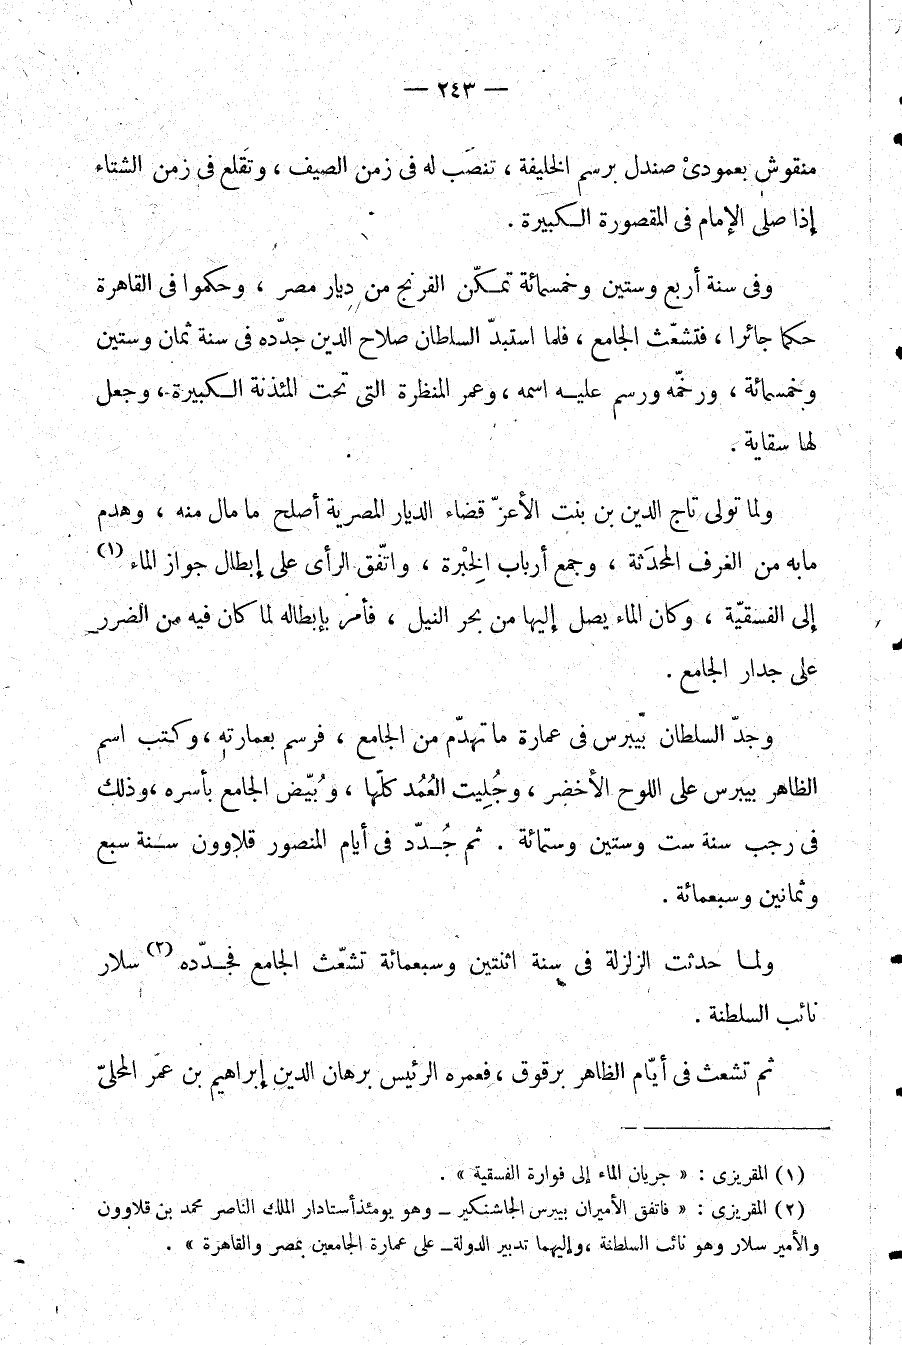 — ٢٤٣ —
منقوش بعمودىْ صندل برسم الخليفة ، تنصَب له فى زمن الصيف ، وتقَلع فى زمن الشتاء
إذا صلى الإمام فى المقصورة الكبيرة .
وفى سنة أربع وستين وخمسمائة تمكّن الفرنج من ديار مصر ، وحكموا فى القاهرة
حكما جائرا ، فتشعّث الجامع ، فلما استبدّ السلطان صلاح الدين جدّده فى سنة ثمان وستين
وخمسمائة ، ورخّمه ورسم عليه اسمه ، وعمر المنظرة التى تحت المئذنة الكبيرة ، وجعل
لها سقاية .
ولما تولى تاج الدين بن بنت الأعزّ قضاء الديار المصرية أصلح ما مال منه ، وهدم
مابه من الغرف المحدَثة ، وجمع أرباب الخِبْرة ، واتّفق الرأى على إبطال جواز الماء (١)
إلى الفسقيّة ، وكان الماء يصل إليها من بحر النيل ، فأمر بإبطاله لما كان فيه من الضرر
على جدار الجامع .
وجدّ السلطان بيبرس فى عمارة ما تهدّم من الجامع ، فرسم بعمارته ، وكتب اسم
الظاهر بيبرس على اللوح الأخضر ، وجُلِيت العُمُد كلّها ، وبُيّض الجامع بأسره ، وذلك
فى رجب سنة ست وستين وستمائة . ثم جُدّد فى أيام المنصور قلاوون سنة سبع
وثمانين وسبعمائة .
ولما حدثت الزلزلة فى سنة اثنتين وسبعمائة تشعّث الجامع فجدّده (٢) سلار
نائب السلطنة .
ثم تشعث فى أيّام الظاهر برقوق ، فعمره الرئيس برهان الدين إبراهيم بن عمَر المحلىّ
(١) المقريزى : « جريان الماء إلى فوارة الفسقية » .
(٢) المقريزى : « فاتفق الأميران بيبرس الجاشنكير ــ وهو يومئذ أستادار الملك الناصر محمد بن قلاوون
والأمير سلار وهو نائب السلطنة ، وإليهما تدبير الدولة ــ على عمارة الجامعين بمصر والقاهرة » .